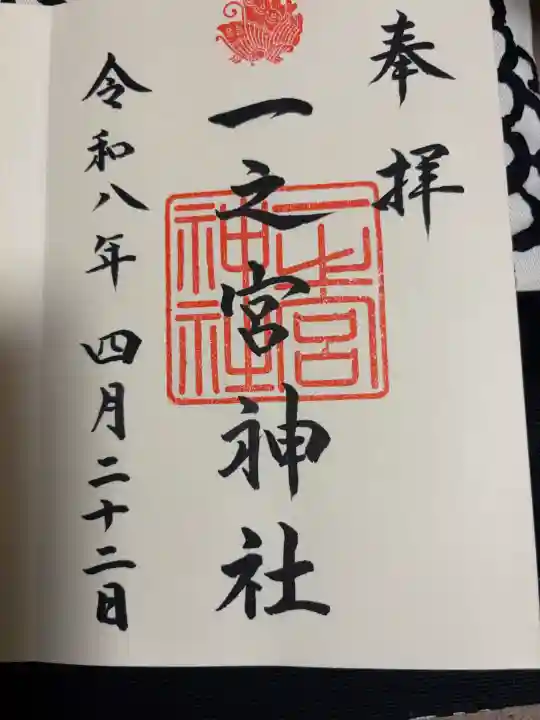 奉拝
一之宮神社
一之宮神社
令和八年四月二十二日